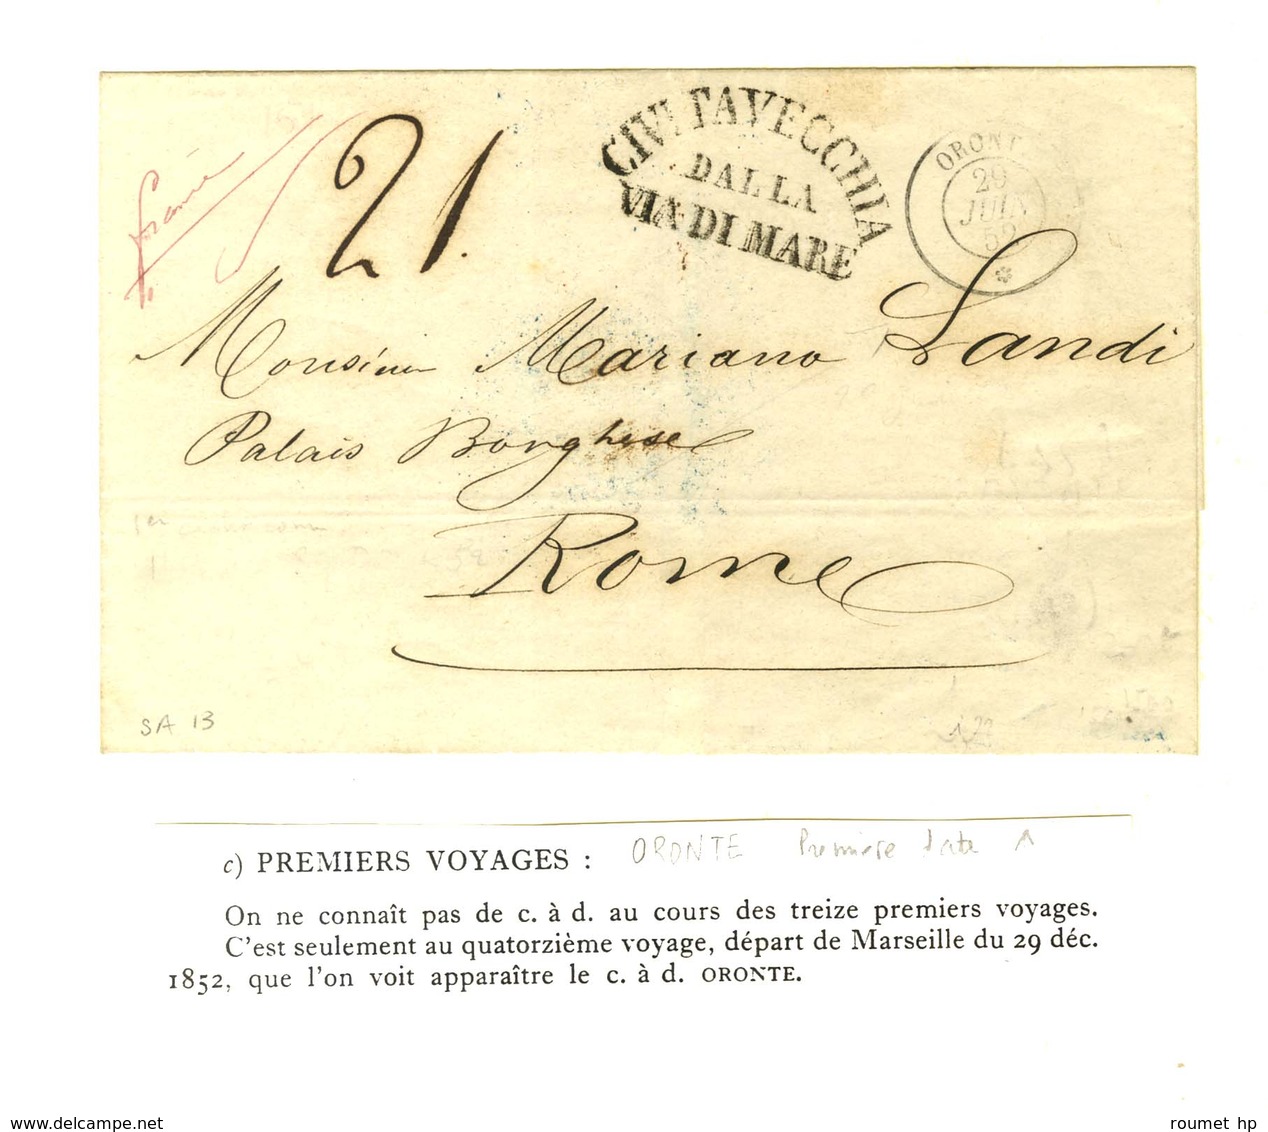 franc
21.
CIVITAVECCHIA
DALLA
VIA DI MARE
ORONT
29
JUIN
52
*
Monsieur Mariano Landi
Palais Borghese
Rome
SA 13
c) PREMIERS VOYAGES : ORONTE Première date
On ne connaît pas de c. à d. au cours des treize premiers voyages.
C'est seulement au quatorzième voyage, départ de Marseille du 29 déc.
1852, que l'on voit apparaître le c. à d. ORONTE.
www.delcampe.net
roumet hp